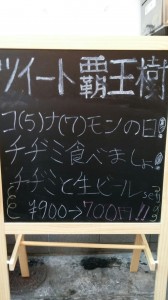 ツイート覇王樹
コ(5)ナ(7)モンの日!
チヂミ食べましょ
チヂミと生ビール
set
¥900→700円!!